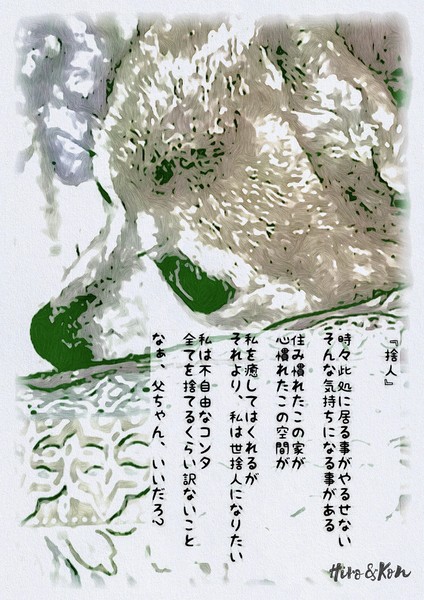 『捨人』
時々此処に居る事がやるせない
そんな気持ちになる事がある
住み慣れたこの家が
心慣れたこの空間が
私を癒してはくれるが
それより、私は世捨人になりたい
私は不自由なコンタ
全てを捨てるくらい訳ないこと
なぁ、父ちゃん、いいだろ?
Hiro&Kon